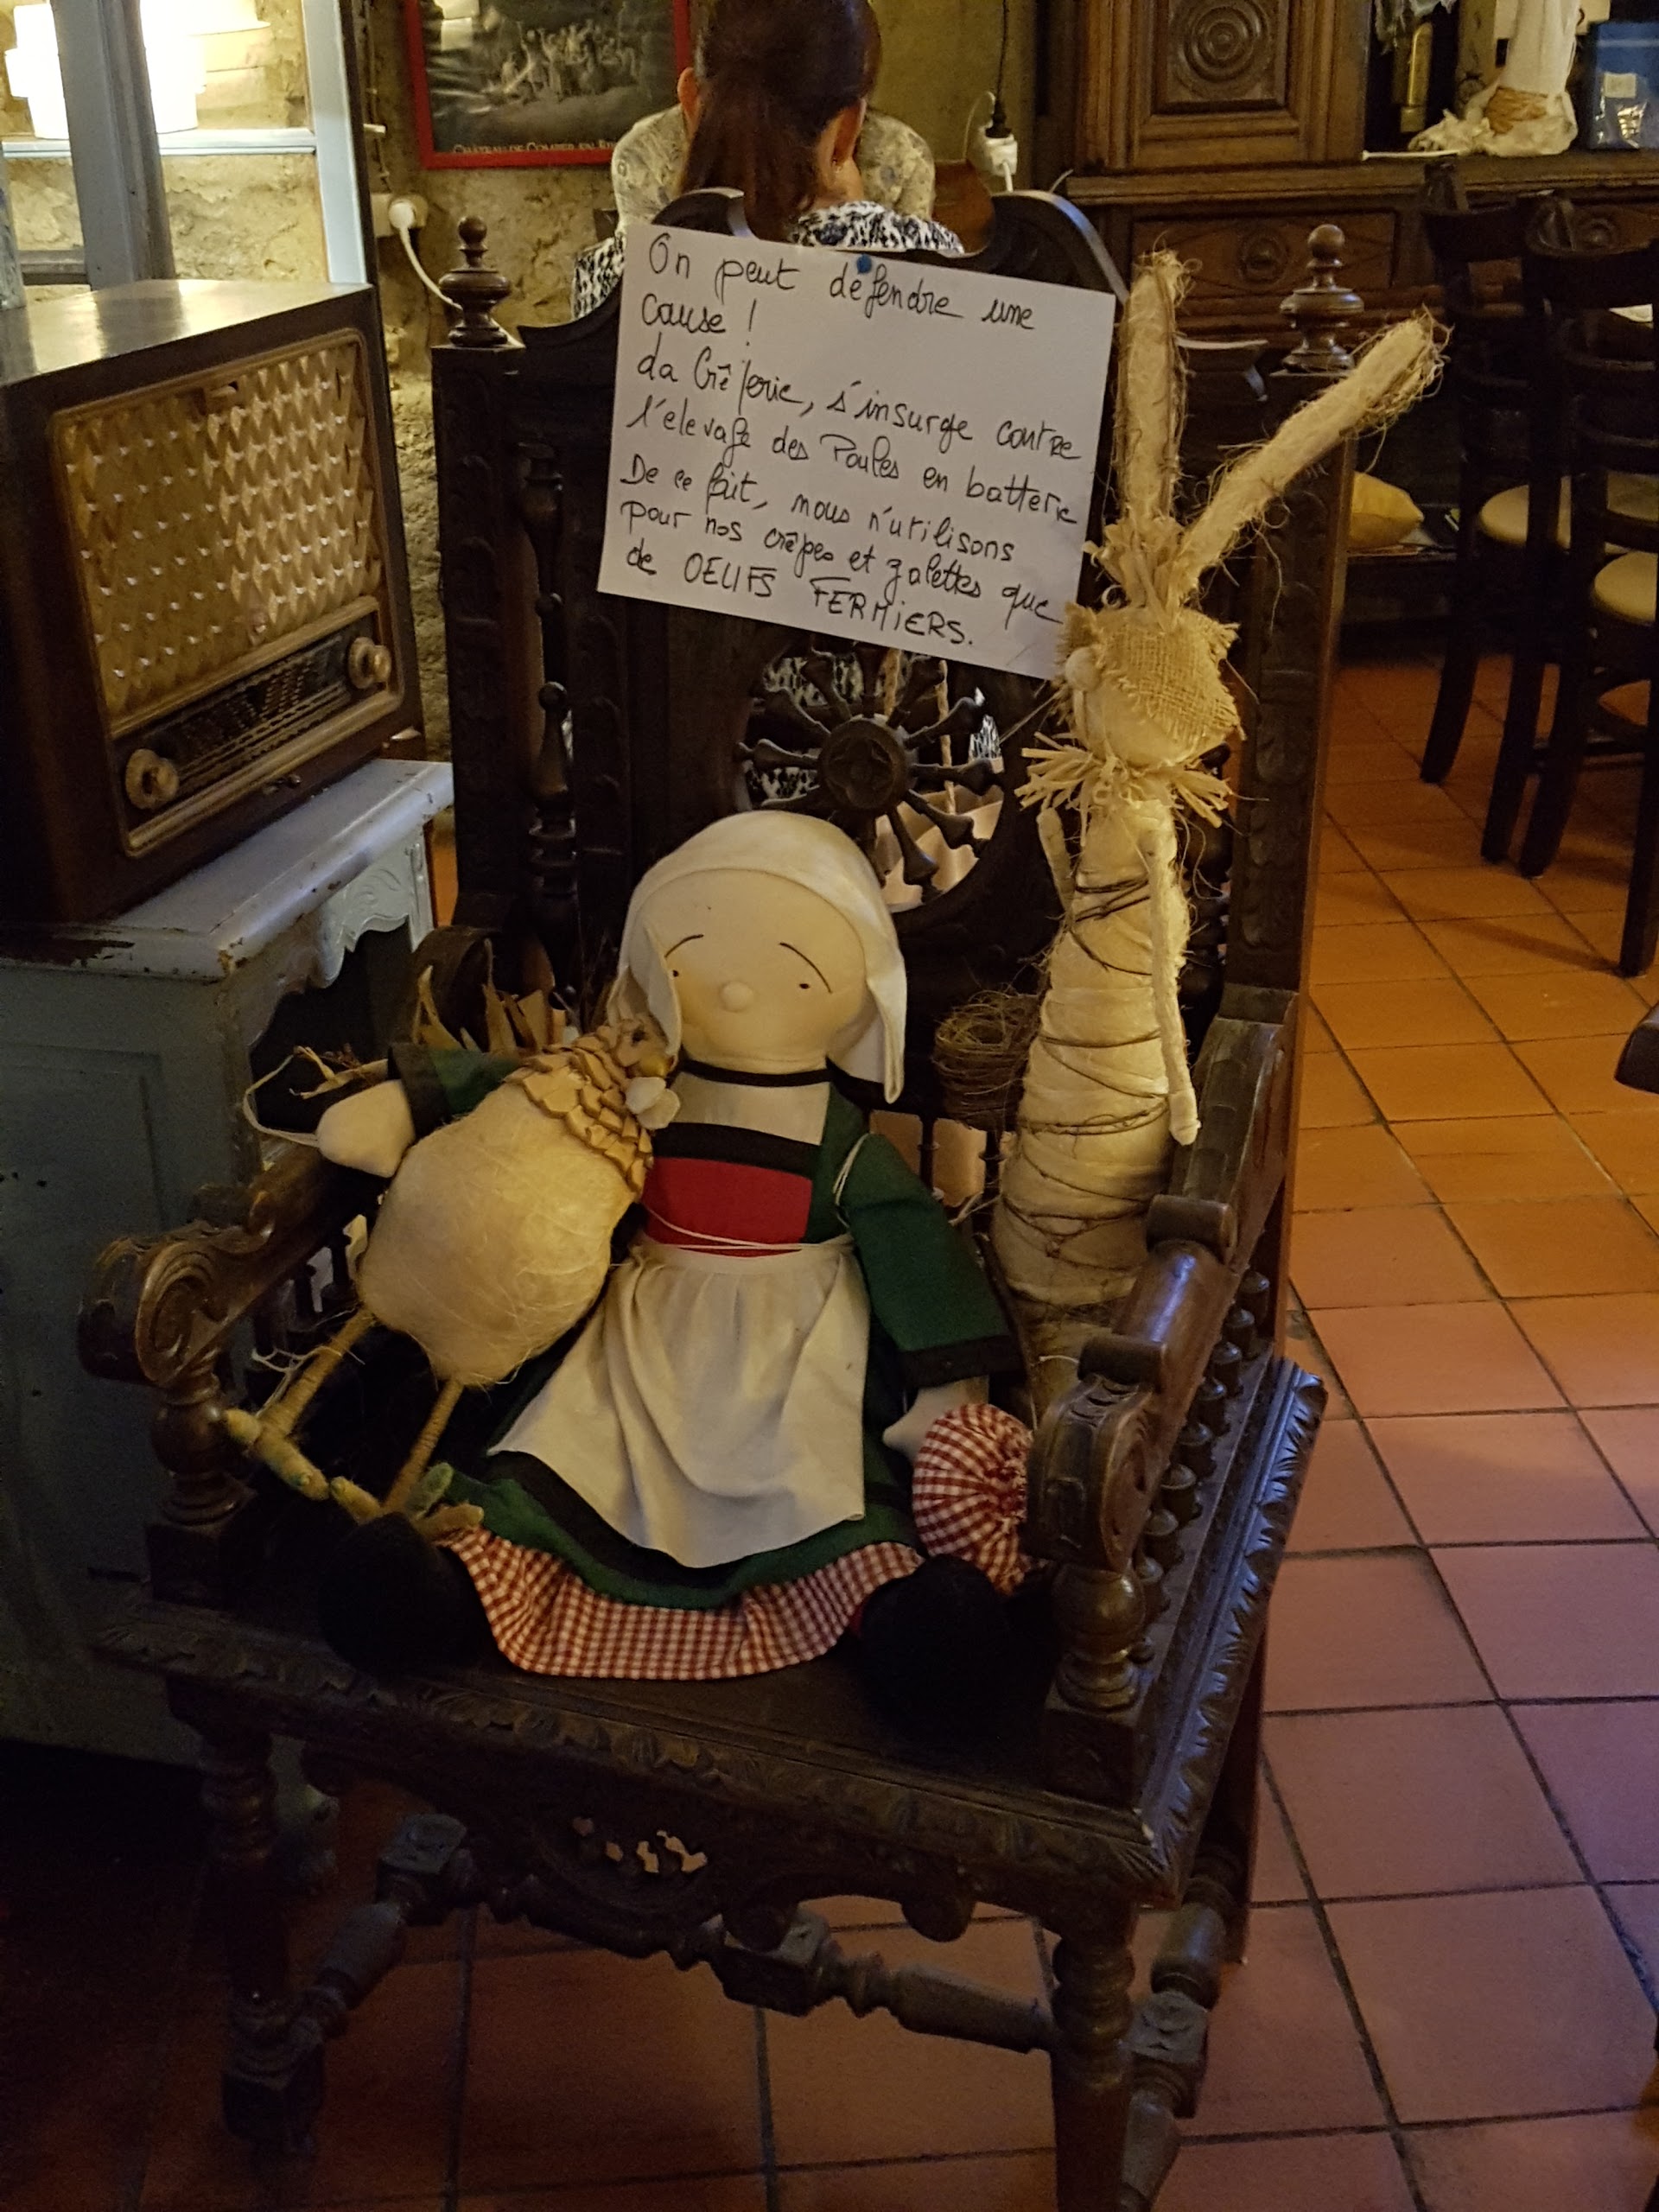 CHÂTEAU DE COMPER-EN-
On peut défendre une
cause !
La Crêperie, s'insurge contre
l'elevage des Poules en batterie
De ce fait, nous n'utilisons
pour nos crêpes et galettes que
de OEUFS FERMIERS.